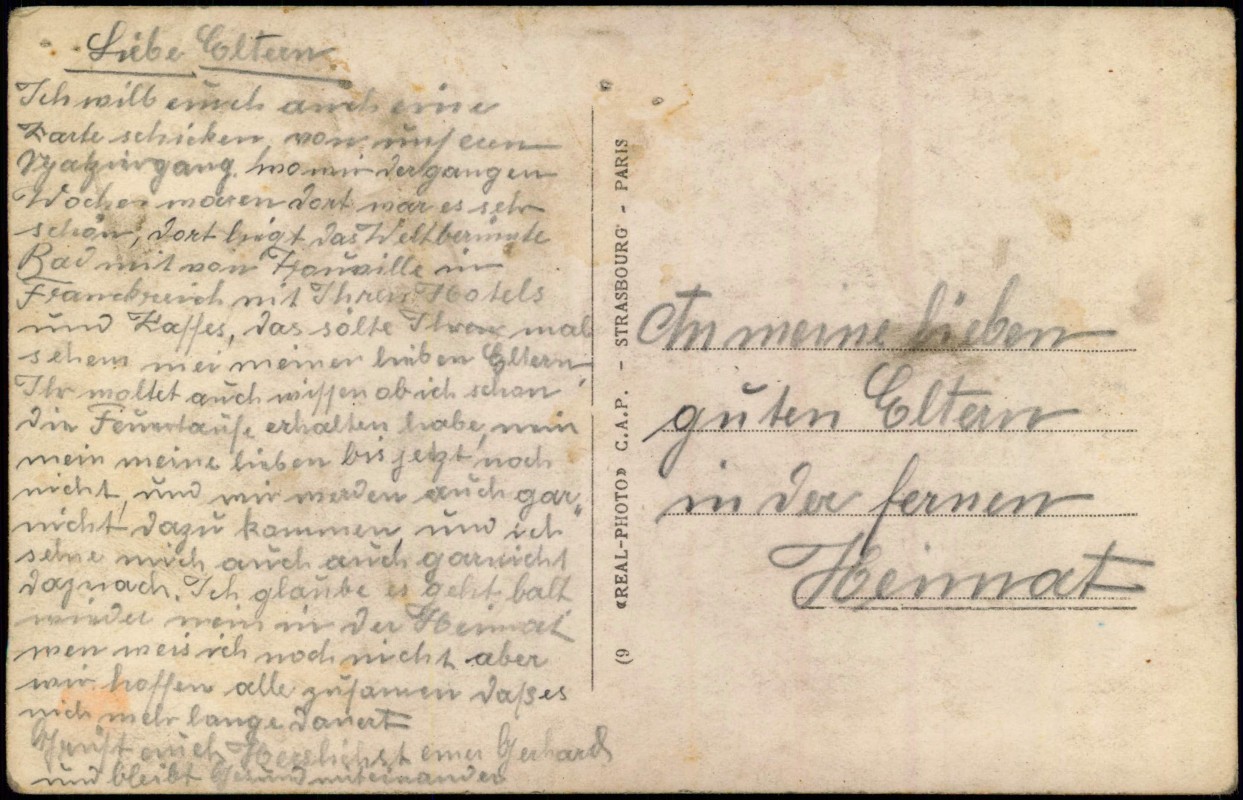 Liebe Eltern.
Ich will euch auch eine
Karte schicken, von unseren
Spatziergang. wo wir vergangen
Wochen waren dort war es sehr
schön, dort liegt das Weltberümte
Bad mit von
Franckreich mit Ihren Hotels
und Kaffes, das solte Ihr mal
sehen meine lieben Eltern,
Ihr woltet auch wissen ob ich schon
die Feuertaufe erhalten habe, nein
nein meine lieben bis jetzt noch
nicht, und wir werden auch gar„
nicht dazu kommen, und ich
sehne mich auch auch garnicht
danach. Ich glaube es geht balt
wieder in der Heimat
wen weis ich noch nicht aber
wir hoffen alle zusamen daß es
nich mehr lange dauert
Grüßt euch Herslichst euer Gerhard
und bleibt Gesund miteinander
(9 «REAL-PHOTO» C.A.P. - STRASBOURG - PARIS
An meine lieben
guten Eltern
in der fernen
Heimat